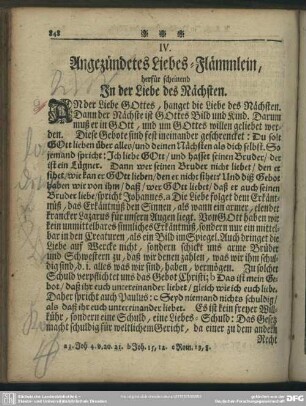 848
IV.
Angezündetes Liebes-Flämmlein,
herfür scheinend
In der Liebe des Nächsten.
AN der Liebe GOttes, hanget die Liebe des Nächsten.
Dann der Nächste ist GOttes Bild und Kind. Darum
muß er in GOtt, und um GOttes willen geliebet wer-
den. Diese Gebote sind fest ineinander geschrencket: Du solt
GOtt lieben über alles/und deinen Nächsten als dich selbst. So
jemand spricht: Ich liebe GOtt/ und hasset seinen Bruder/ der
ist ein Lügner. Dann wer seinen Bruder nicht liebet/ den er
sihet/ wie kan er GOtt lieben/ den er nicht sihet? Und diß Gebot
haben wir von ihm/ daß/ wer GOtt liebet/ daß er auch seinen
Bruder liebe/ spricht Johannes. a Die Liebe folget dem Erkänt-
niß, das Erkäntniß den Sinnen, als wann ein armer, elender
krancker Lazarus für unsern Augen liegt. Von GOtt haben wir
kein unmittelbares sinnliches Erkäntniß, sondern nur ein mittel-
bar in den Creaturen, als ein Bild im Spiegel. Auch dringet die
Liebe auf Wercke nicht, sondern schickt uns arme Brüder
und Schwestern zu, daß wir denen zahlen, was wir ihm schul-
dig sind, d. i. alles was wir sind, haben, vermögen. Zu solcher
Schuld verpflichtet uns das Gebot Christi; b Das ist mein Ge-
bot/ daß ihr euch untereinander liebet/ gleich wie ich euch liebe.
Daher spricht auch Paulus: c Seyd niemand nichts schuldig/
als daß ihr euch untereinander liebet. Es ist kein freyer Will-
kühr, sondern eine Schuld, eine Liebes-Schuld: Das Gesetz
macht schuldig für weltlichem Gericht, da einer zu dem andern
Recht
a 1. Joh. 4. v. 20. 21. b Joh. 15, 12. c Rom. 13, 8.